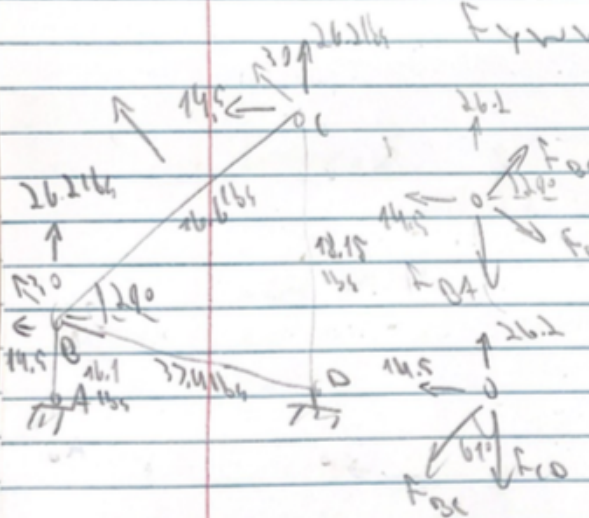 30 26.2 lbs
14.5
C
26.2
26.2 lbs
16.6 lbs
14.5
18.18
lbs
F BA
30
29°
26.2
14.5
B
16.1
lbs
A
37.4 lbs
D
14.5
61°
F CD
F BC